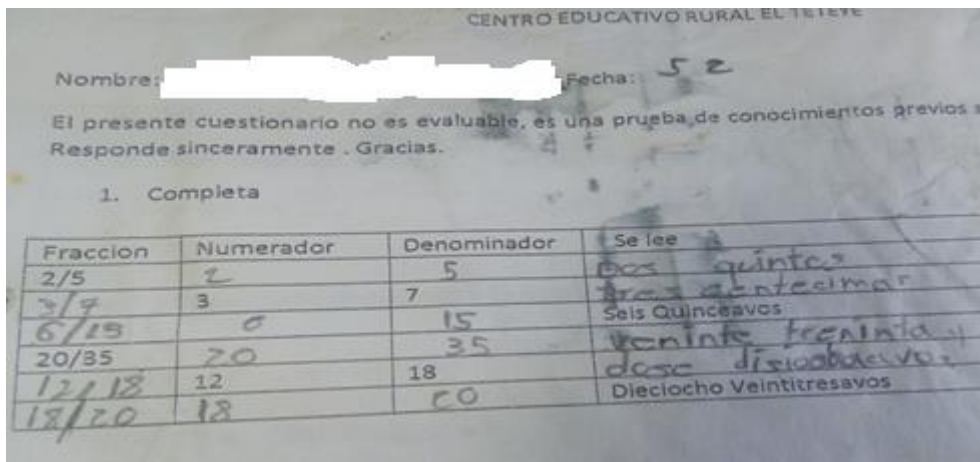 CENTRO EDUCATIVO RURAL EL TETEYE
Nombre: Fecha: 5 2
El presente cuestionario no es evaluable, es una prueba de conocimientos previos
Responde sinceramente . Gracias.
1. Completa
Fraccion Numerador Denominador Se lee
2/5 2 5 Dos quintos
3/7 3 7 tres
6/15 6 15 Seis Quinceavos
20/35 20 35 veninte treninta y
12/18 12 18 dose
18/20 18 20 Dieciocho Veintitresavos